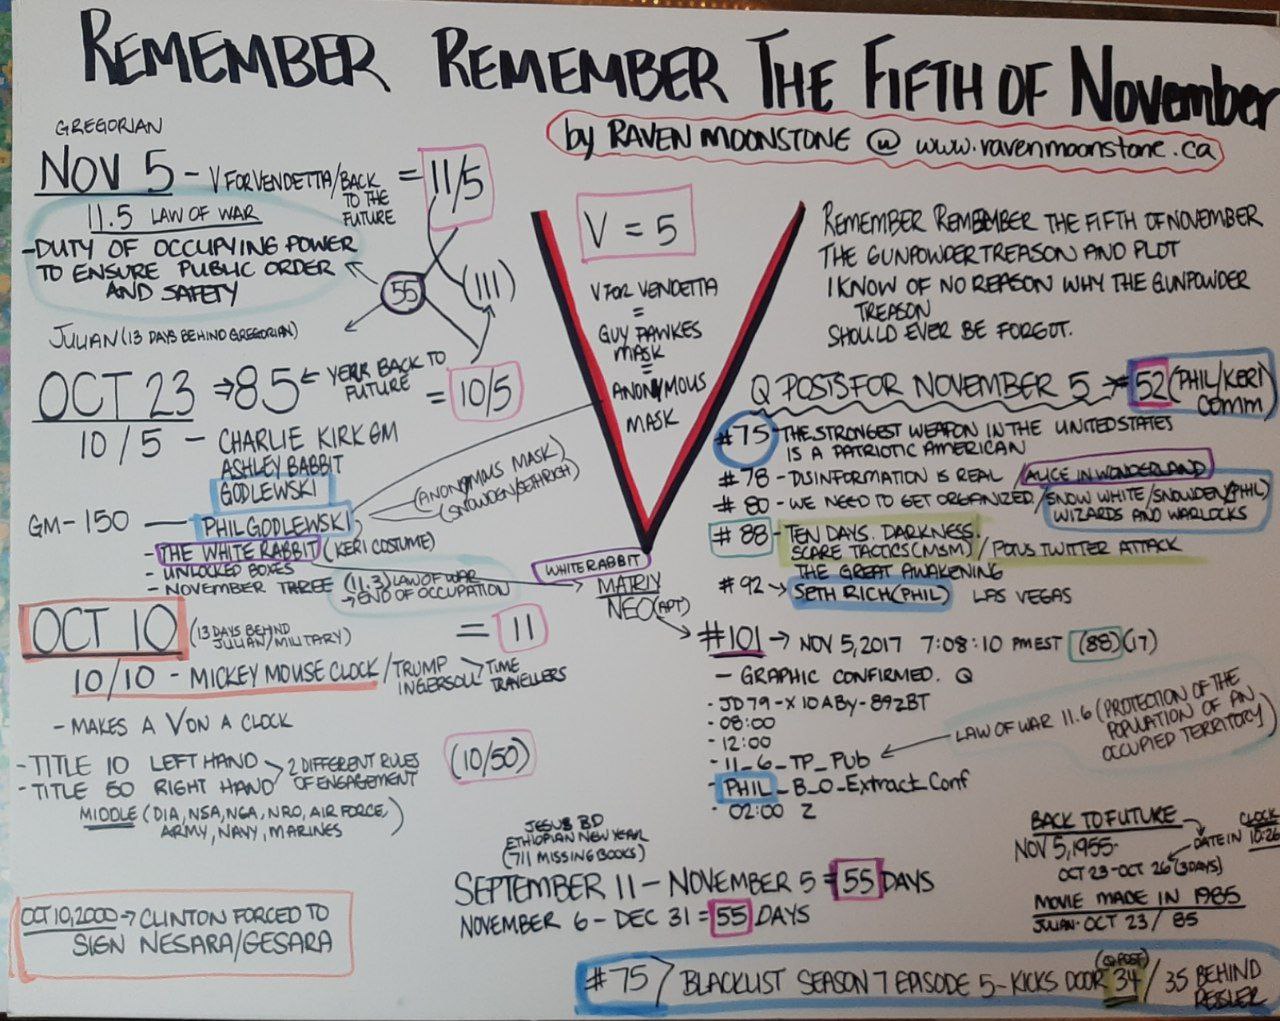 REMEMBER REMEMBER THE FIFTH OF November
by RAVEN MOONSTONE @ www.ravenmoonstone.ca
GREGORIAN
NOV 5 - V FOR VENDETTA/BACK TO THE FUTURE = 11/5
11.5 LAW OF WAR
-DUTY OF OCCUPYING POWER
TO ENSURE PUBLIC ORDER
AND SAFETY
55
(111)
JULIAN (13 DAYS BEHIND GREGORIAN)
OCT 23 → 85 ← YEAR BACK TO FUTURE = 10/5
10/5 - CHARLIE KIRK GM
ASHLEY BABBIT
GODLEWSKI
GM-150 — PHIL GODLEWSKI
(ANONYMOUS MASK)
(SNOWDEN/SETHRICH)
- THE WHITE RABBIT (KERI COSTUME)
- UNLOCKED BOXES
- NOVEMBER THREE (11.3) LAW OF WAR
→ END OF OCCUPATION
OCT 10 (13 DAYS BEHIND JULIAN/MILITARY) = 11
10/10 - MICKEY MOUSE CLOCK / TRUMP INGERSOLL > TIME TRAVELLERS
- MAKES A V ON A CLOCK
- TITLE 10 LEFT HAND
- TITLE 50 RIGHT HAND > 2 DIFFERENT RULES OF ENGAGEMENT (10/50)
MIDDLE (DIA, NSA, NGA, NRO, AIR FORCE,
ARMY, NAVY, MARINES)
OCT 10, 2000 → CLINTON FORCED TO
SIGN NESARA/GESARA
V = 5
V FOR VENDETTA
=
GUY FAWKES
MASK
=
ANONYMOUS
MASK
WHITE RABBIT
MATRIX
NEO (APT)
REMEMBER REMEMBER THE FIFTH OF NOVEMBER
THE GUNPOWDER TREASON AND PLOT
I KNOW OF NO REASON WHY THE GUNPOWDER
TREASON
SHOULD EVER BE FORGOT.
Q POSTS FOR NOVEMBER 5 → 52 (PHIL/KERI COMM)
#75 - THE STRONGEST WEAPON IN THE UNITED STATES
IS A PATRIOTIC AMERICAN
#78 - DISINFORMATION IS REAL / ALICE IN WONDERLAND
#80 - WE NEED TO GET ORGANIZED / SNOW WHITE/SNOWDEN (PHIL)
WIZARDS AND WARLOCKS
#88 - TEN DAYS. DARKNESS.
SCARE TACTICS (MSM) / POTUS TWITTER ATTACK
THE GREAT AWAKENING
#92 → SETH RICH (PHIL) LAS VEGAS
#101 → NOV 5, 2017 7:08:10 PM EST (88) (17)
- GRAPHIC CONFIRMED. Q
· JD79-X10ABy-89ZBT
· 08:00
· 12:00
· 11_6_TP_Pub ← LAW OF WAR 11.6 (PROTECTION OF THE
POPULATION OF AN
OCCUPIED TERRITORY)
· PHIL_B_O_Extract_Conf
· 02:00 Z
JESUS BD
ETHIOPIAN NEW YEAR
(711 MISSING BOOKS)
SEPTEMBER 11 - NOVEMBER 5 = 55 DAYS
NOVEMBER 6 - DEC 31 = 55 DAYS
BACK TO FUTURE
NOV 5, 1955
DATE IN CLOCK 10:26
OCT 23-OCT 26 (3 DAYS)
MOVIE MADE IN 1985
JULIAN-OCT 23/85
#75 / BLACKLIST SEASON 7 EPISODE 5 - KICKS DOOR (Q POST) 34 / 35 BEHIND RESSLER